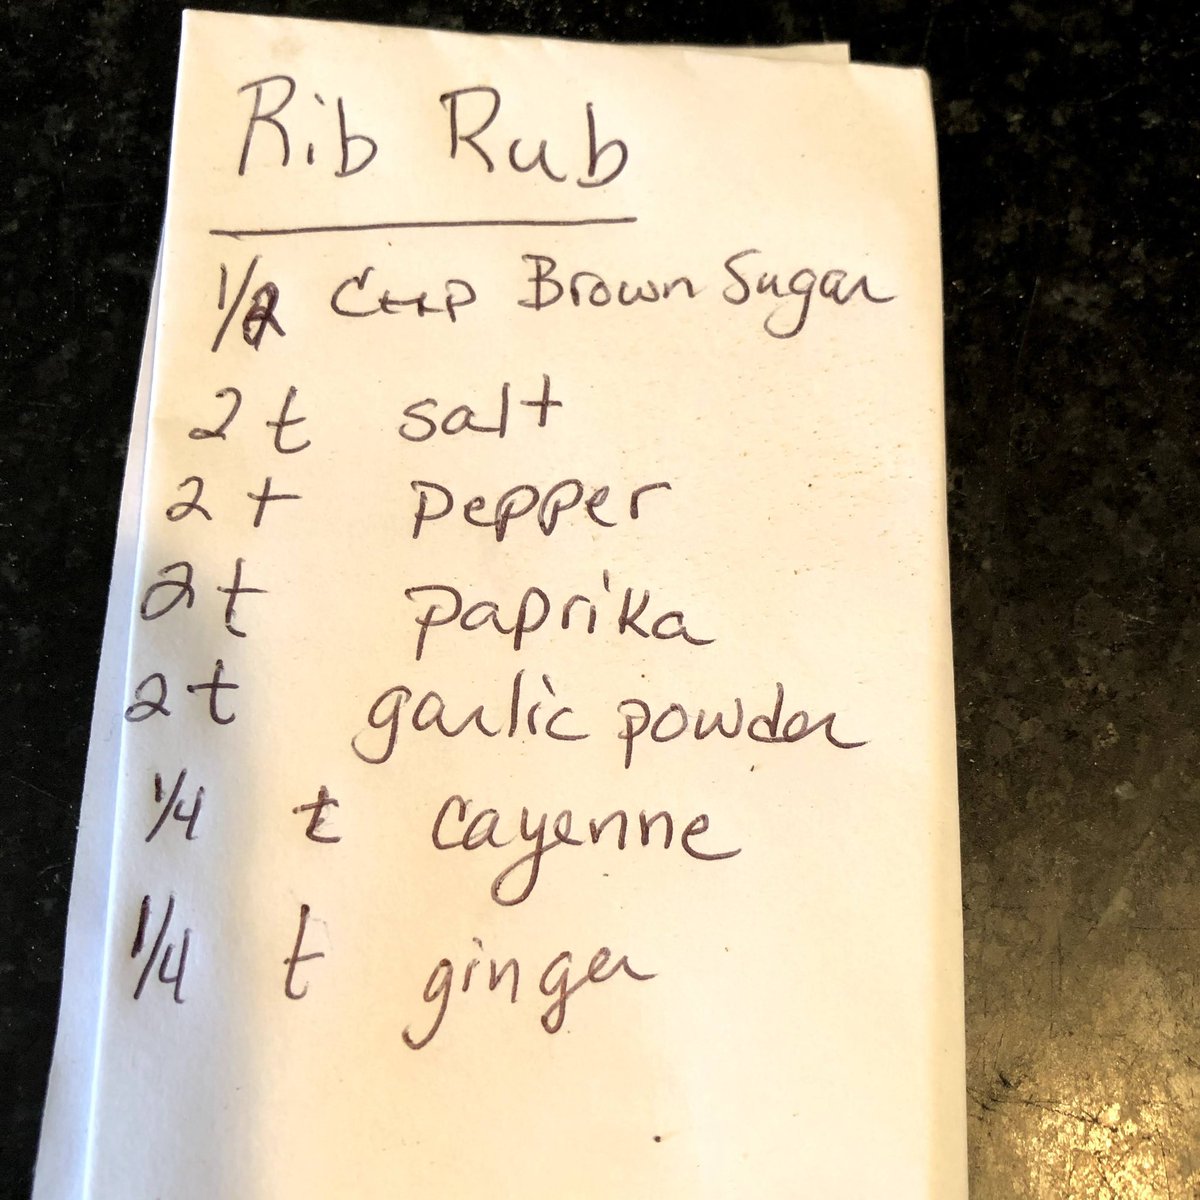 Rib Rub
1/2 Cup Brown Sugar
2 t salt
2 t pepper
2 t paprika
2 t garlic powder
1/4 t cayenne
1/4 t ginger